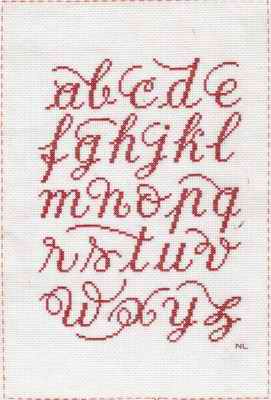 abcde
fghijkl
mnopq
rstuv
wxyz
NL